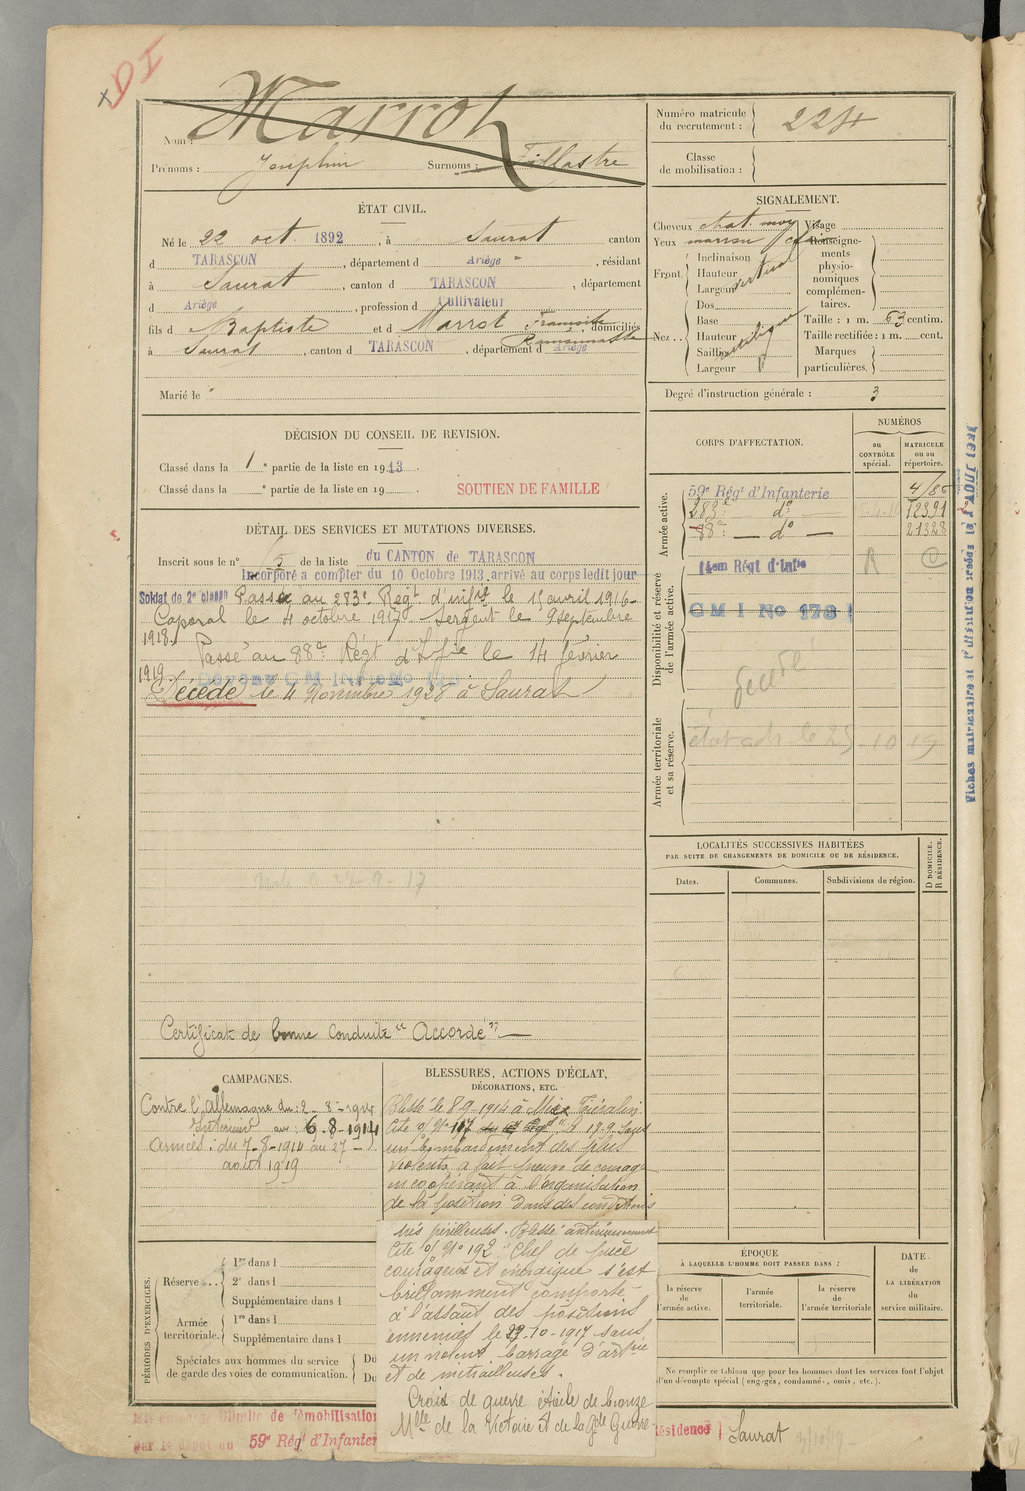 DI
Nom : Marrot
Prénoms : Josephin Surnoms : Fillastre
Numéro matricule du recrutement : 224
Classe de mobilisation :
ÉTAT CIVIL.
Né le 22 oct. 1892, à Saurat canton
d TARASCON, département d Ariège, résidant
à Saurat, canton d TARASCON, département
d Ariège, profession d Cultivateur
fils d Baptiste et d Marrot Françoise domiciliés
à Saurat, canton d TARASCON, département d Ariège
Marié le
SIGNALEMENT.
Cheveux chat. moy Visage
Yeux marron clair Renseignements physionomiques complémentaires.
Front. Inclinaison vertical
Hauteur
Largeur
Nez.. Dos rectiligne
Base
Hauteur
Saillie
Largeur
Taille : 1 m. 63 centim.
Taille rectifiée : 1 m. cent.
Marques particulières.
Degré d'instruction générale : 3
DÉCISION DU CONSEIL DE REVISION.
Classé dans la 1e partie de la liste en 1913.
Classé dans la e partie de la liste en 19 . SOUTIEN DE FAMILLE
DÉTAIL DES SERVICES ET MUTATIONS DIVERSES.
Inscrit sous le n° 5 de la liste du CANTON de TARASCON
Incorporé a compter du 10 Octobre 1913 arrivé au corps ledit jour
Soldat de 2e classe Passé au 283e Régt d'infie le 15 avril 1916
Caporal le 4 octobre 1917 Sergent le 9 septembre
1918. Passé au 88e Régt d'Infie le 14 février
1919.
Décédé le 4 Novembre 1928 à Saurat
Certificat de bonne conduite "Accordé"
CORPS D'AFFECTATION.
NUMÉROS
au CONTRÔLE spécial.
MATRICULE ou au répertoire.
Armée active.
59e Régt d'Infanterie 4186
283e do 12391
88e — do — 21328
Disponibilité et réserve de l'armée active.
14em Régt d'Infie R
G M I No 178
décédé
Armée territoriale et sa réserve.
détaché le 25-10-19
LOCALITÉS SUCCESSIVES HABITÉES
PAR SUITE DE CHANGEMENTS DE DOMICILE OU DE RÉSIDENCE.
Dates. Communes. Subdivisions de région. D DOMICILE. R RÉSIDENCE.
CAMPAGNES.
Contre l'Allemagne du : 2-8-1914
Intérieur au 6-8-1914
Armées : du 7-8-1914 au 27
août 1919
BLESSURES, ACTIONS D'ÉCLAT,
DÉCORATIONS, ETC.
Blessé le 8-9-1914 à
Cité O/ No 117 17.9. Sous
un bombardement des plus
violents a fait preuve de courage
en coopérant à l'organisation
de la position dans des conditions
très périlleuses. Blessé antérieurement
Cité O/ No 192 "Chef de pièce
courageux et énergique s'est
brillamment comporté
à l'assaut des positions
ennemies le 23-10-1917 sous
un violent barrage d'artie
et de mitrailleuses.
Croix de guerre étoile de bronze
Mlle de la Victoire et de la Gde Guerre
PÉRIODES D'EXERCICES.
Réserve... 1re dans l
2e dans l
Supplémentaire dans l
Armée territoriale. 1re dans l
Supplémentaire dans l
Spéciales aux hommes du service de garde des voies de communication. Du
Du
ÉPOQUE
À LAQUELLE L'HOMME DOIT PASSER DANS :
la réserve de l'armée active.
l'armée territoriale.
la réserve de l'armée territoriale
DATE de LA LIBÉRATION du service militaire.
Ne remplir ce tableau que pour les hommes dont les services font l'objet d'un décompte spécial (engagés, condamnés, omis, etc.).
illimité de démobilisation
par le dépôt du 59e Régt d'Infanter
Résidence Saurat